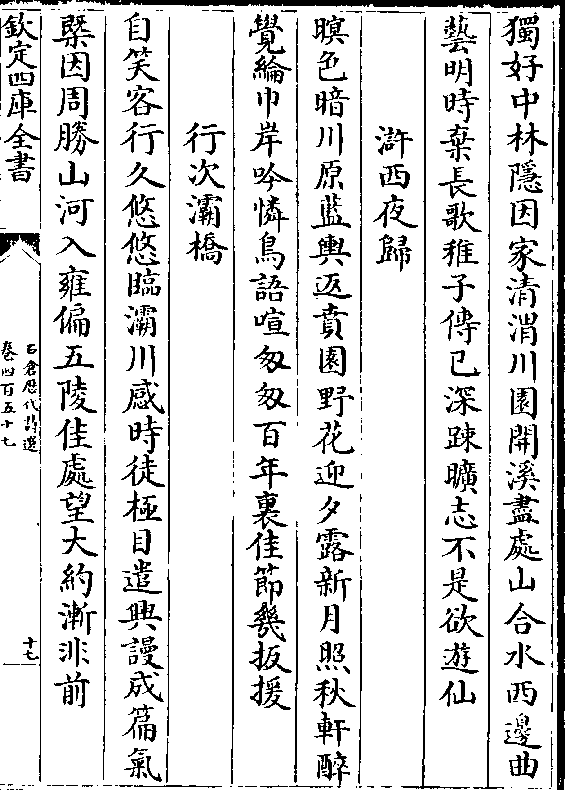 獨好中林隱因家清渭川園開溪盡處山合水西邊曲
藝明時棄長歌稚子傳已深踈曠志不是欲遊仙
滸西夜歸
暝色暗川原藍輿返賁園野花迎夕露新月照秋軒醉
覺綸巾岸吟憐鳥語喧匆匆百年裏佳節幾扳援
行次灞橋
自笑客行久悠悠臨灞川感時徒極目遣興謾成篇氣
槩因周勝山河入雍偏五陵佳處望大約漸非前
欽定四庫全書
石倉歴代詩選
卷四百五十七
十七